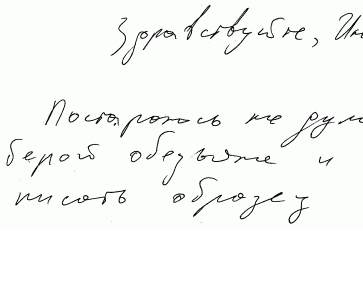 Здравствуйте, Ин
Постараюсь не дум
белой обезьяне и
писать образец